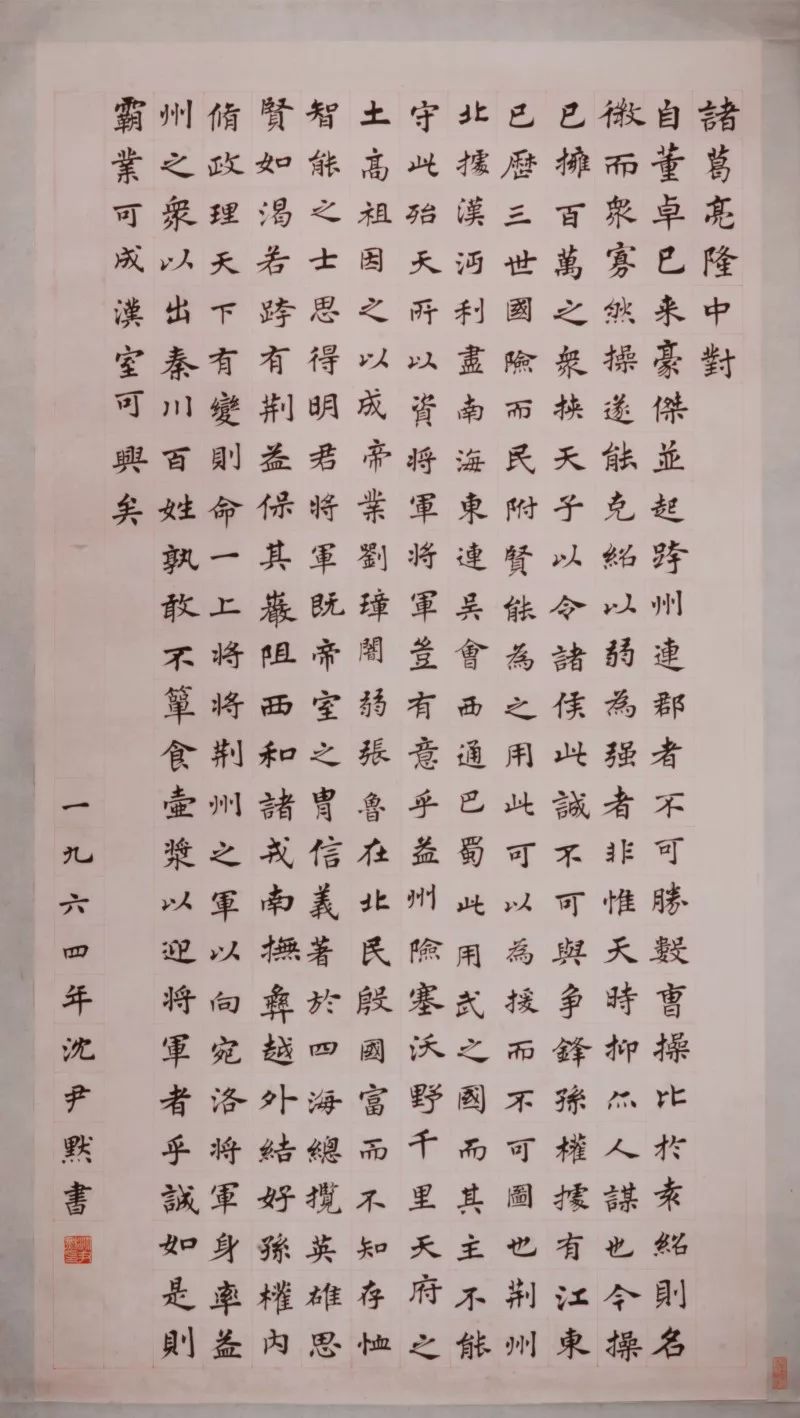 諸葛亮隆中對
自董卓已来豪傑並起跨州連郡者不可勝數曹操比於袁紹則名
微而衆寡然操遂能克紹以弱為强者非惟天時抑亦人謀也今操
已擁百萬之衆挾天子以令諸侯此誠不可與争鋒孫權據有江東
已歷三世國險而民附賢能為之用此可以為援而不可圖也荆州
北據漢沔利盡南海東連吴會西通巴蜀此用武之國而其主不能
守此殆天所以資将軍将軍豈有意乎益州險塞沃野千里天府之
土高祖因之以成帝業劉璋闇弱張魯在北民殷國富而不知存恤
智能之士思得明君将軍既帝室之胄信義著於四海總攬英雄思
賢如渴若跨有荆益保其巖阻西和諸戎南撫彝越外結好孫權内
脩政理天下有變則命一上将将荆州之軍以向宛洛将軍身率益
州之衆以出秦川百姓孰敢不簞食壷漿以迎将軍者乎誠如是則
霸業可成漢室可興矣
一九六四年沈尹默書